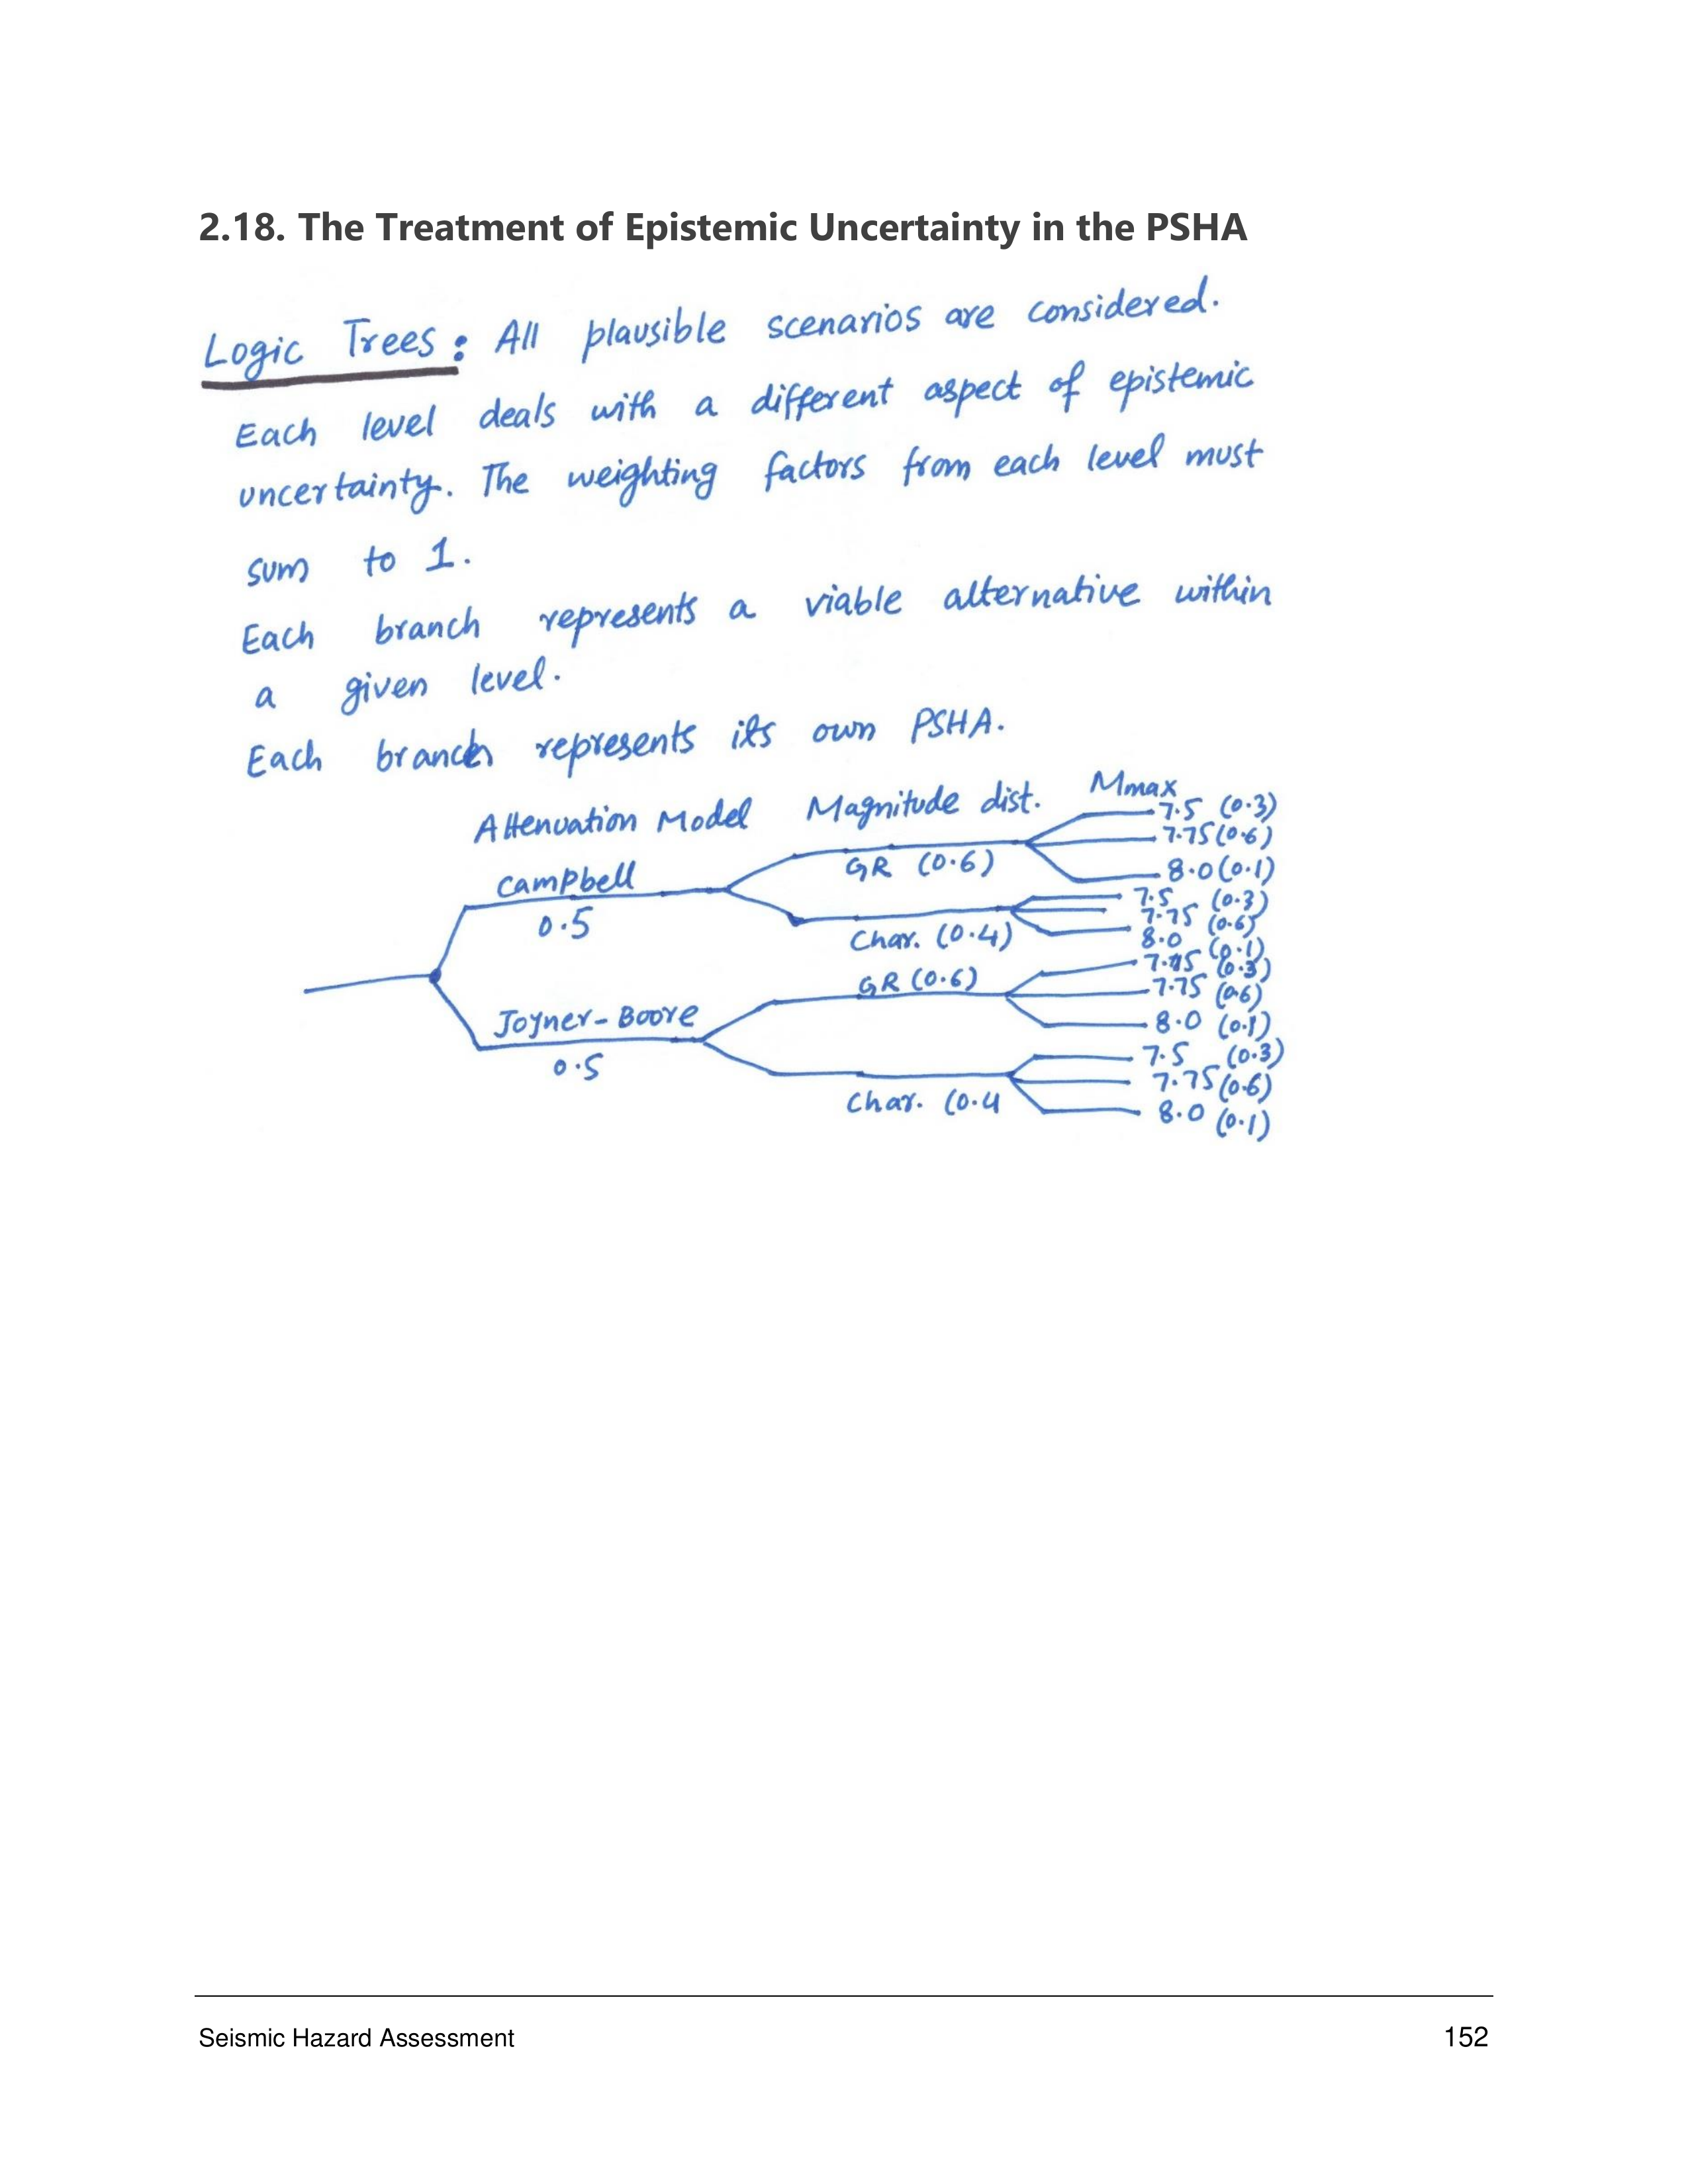 2.18. The Treatment of Epistemic Uncertainty in the PSHA
Logic Trees: All plausible scenarios are considered.
Each level deals with a different aspect of epistemic
uncertainty. The weighting factors from each level must
sum to 1.
Each branch represents a viable alternative within
a given level.
Each branch represents its own PSHA.
Attenuation Model Magnitude dist. Mmax
7.5 (0.3)
7.75 (0.6)
8.0 (0.1)
Campbell
0.5
GR (0.6)
7.5 (0.3)
7.75 (0.6)
8.0 (0.1)
Char. (0.4)
GR (0.6)
(0.3)
7.75 (0.6)
8.0 (0.1)
Joyner-Boore
0.5
7.5 (0.3)
7.75 (0.6)
8.0 (0.1)
Char. (0.4
Seismic Hazard Assessment 152